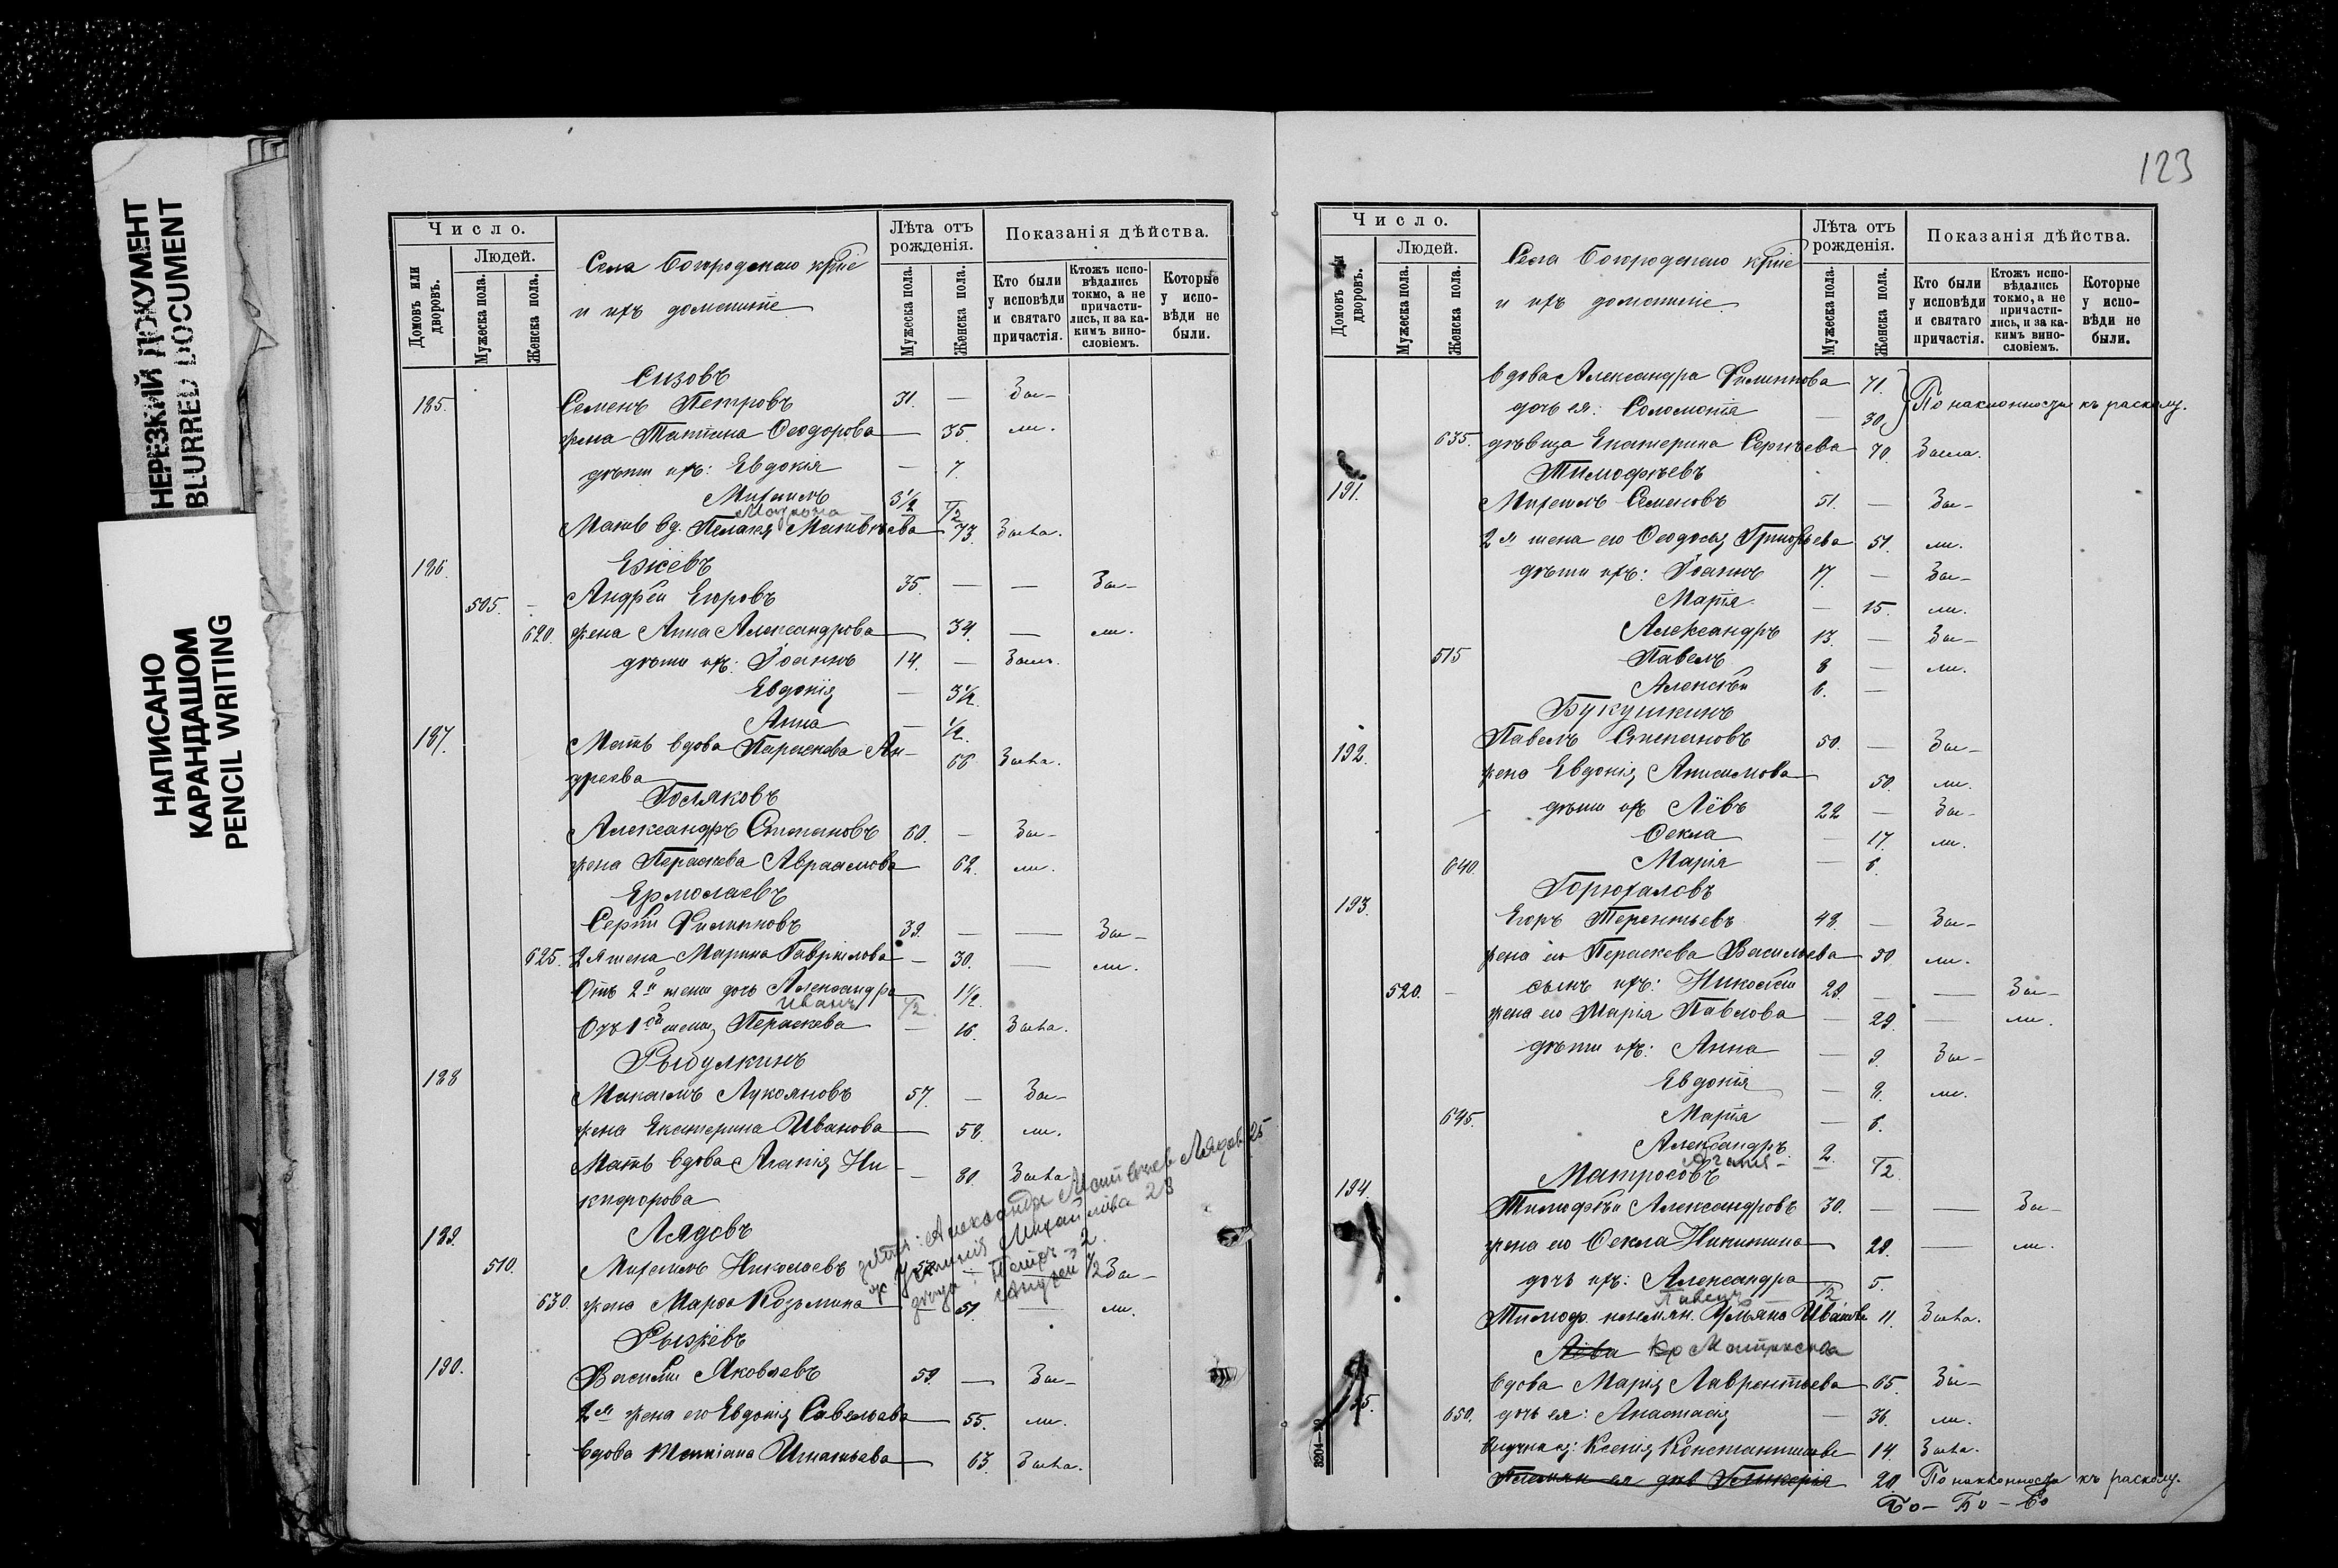 НЕРЕЗКИЙ ДОКУМЕНТ
BLURRED DOCUMENT
НАПИСАНО
КАРАНДАШОМ
PENCIL WRITING
Число.
Людей.
Домовъ или дворовъ.
Мужеска пола.
Женска пола.
Села Богородскаго крᲅне
и ихъ домашніе
Лѣта отъ рожденія.
Мужеска пола.
Женска пола.
Показанія дѣйства.
Кто были у исповѣди и святаго причастія.
Ктожъ исповѣдались токмо, а не причастились, и за какимъ винословіемъ.
Которые у исповѣди не были.
Сизовъ
185. Семенъ Петровъ 31. — Бы-
жена Татіана Ѳеодорова — 35. ли.
дѣти ихъ: Евдокія — 7.
Михаилъ 3 1/2
1/2
Мать вд. Пелагія Матвѣева 73. Была.
186. Ежевъ
505. Андрей Егоровъ 35. — — Бы-
620. жена Анна Александрова 34. — ли.
дѣти ихъ: Іоаннъ 14. — Былъ.
Евдокія — 3 1/2
Анна — 1/2.
187. Мать вдова Параскева Ан-
дреева 66 Была.
Госяковъ
Александръ Степановъ 60. — Бы-
жена Параскева Авраамова 62. ли.
Ермолаевъ
Сергій Филипповъ 39. — — Бы-
625. 2я жена Марина Гавриилова — 30. — ли.
Отъ 2й жены дочь Александра 1 1/2.
Иванъ 1/2
Отъ 1ой жены Параскева — 16. Была.
Рыбулкинъ
188 Максимъ Лукояновъ 57. — Бы-
жена Екатерина Иванова 58. ли.
Мать вдова Агапія Ни- — 80. Была
кифорова
189. Лядовъ
510. Михаилъ Николаевъ 52 — Бы-
зять: Александръ Матвѣев Лядов 25
Михайлова 23
Петръ 2.
Андрей 1/2
630. жена Марѳа Козьмина 51. — ли.
Рыжевъ
190. Василій Яковлевъ 59. — Бы-
2ая жена его Евдокія Савельева 55. ли.
вдова Татіана Игнатьева 63. Была.
123
Число.
Людей.
Домовъ или дворовъ.
Мужеска пола.
Женска пола.
Села Богородскаго крᲅне
и ихъ домашніе
Лѣта отъ рожденія.
Мужеска пола.
Женска пола.
Показанія дѣйства.
Кто были у исповѣди и святаго причастія.
Ктожъ исповѣдались токмо, а не причастились, и за какимъ винословіемъ.
Которые у исповѣди не были.
вдова Александра Филиппова 71.
дочь ея: Соломонія — 30. По наклонности къ расколу.
635. дѣвица Екатерина Сергѣева 70. Была.
Тимофѣевъ
191. Михаилъ Семеновъ 51. — Бы-
2я жена его Ѳеодосія Григорьева 51. ли.
дѣти ихъ: Іоаннъ 17. — Бы-
Марія — 15. ли.
Александръ 13. — Бы-
515 Павелъ 8 — ли.
Алексѣй 6. —
Букушкинъ
192. Павелъ Степановъ 50. — Бы-
жена Евдокія Анисимова 50. ли.
дѣти ихъ Лёвъ 22 — Бы-
Ѳекла — 17. ли.
640. Марія — 6.
Горюхаловъ
193. Егоръ Терентьевъ 48. — Бы-
жена его Параскева Васильева 50 ли.
520. сынъ ихъ: Николай 29. — — Бы-
жена его Марія Павлова — 29. — ли.
дѣти ихъ: Анна — 9. Бы-
Евдокія — 8. ли.
645. Марія — 6.
Александръ 2.
Агапія 1/2
Матросовъ
194. Тимофѣй Александровъ 30. — — Бы-
жена его Ѳекла Никитина 28. — ли.
дочь ихъ: Александра 5.
Павелъ 1/2
Тимоф. племян. Ульяна Иванова 11. Была.
Матросова
195. вдова Марія Лаврентьева 65. Бы-
650. дочь ея: Анастасія — 36. ли.
внучка ея: Ксенія Константинова 14. Была.
Племян ея дѣв Гликерія 20. По наклонности къ расколу.
Бо- Бо- Бо
3204—